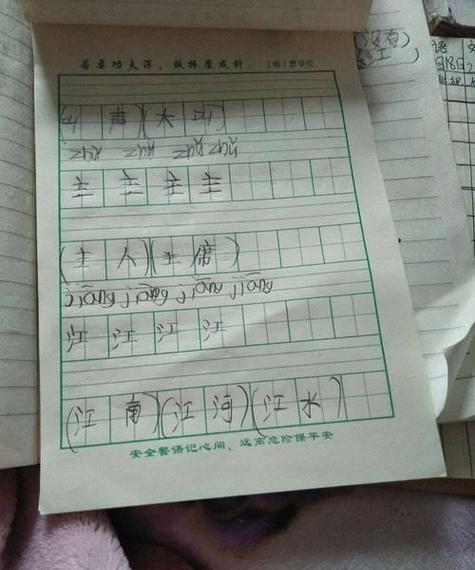 若要功夫深，铁杵磨成针。 (明)曹学佺
(叫 声)(木 叫)
zhǔ zhǔ zhǔ zhǔ
主 主 主 主
(主 人)(主 席)
jiāng jiāng jiāng jiāng
江 江 江 江
(江 南)(江 河)(江 水)
安全警语记心间，远离危险保平安